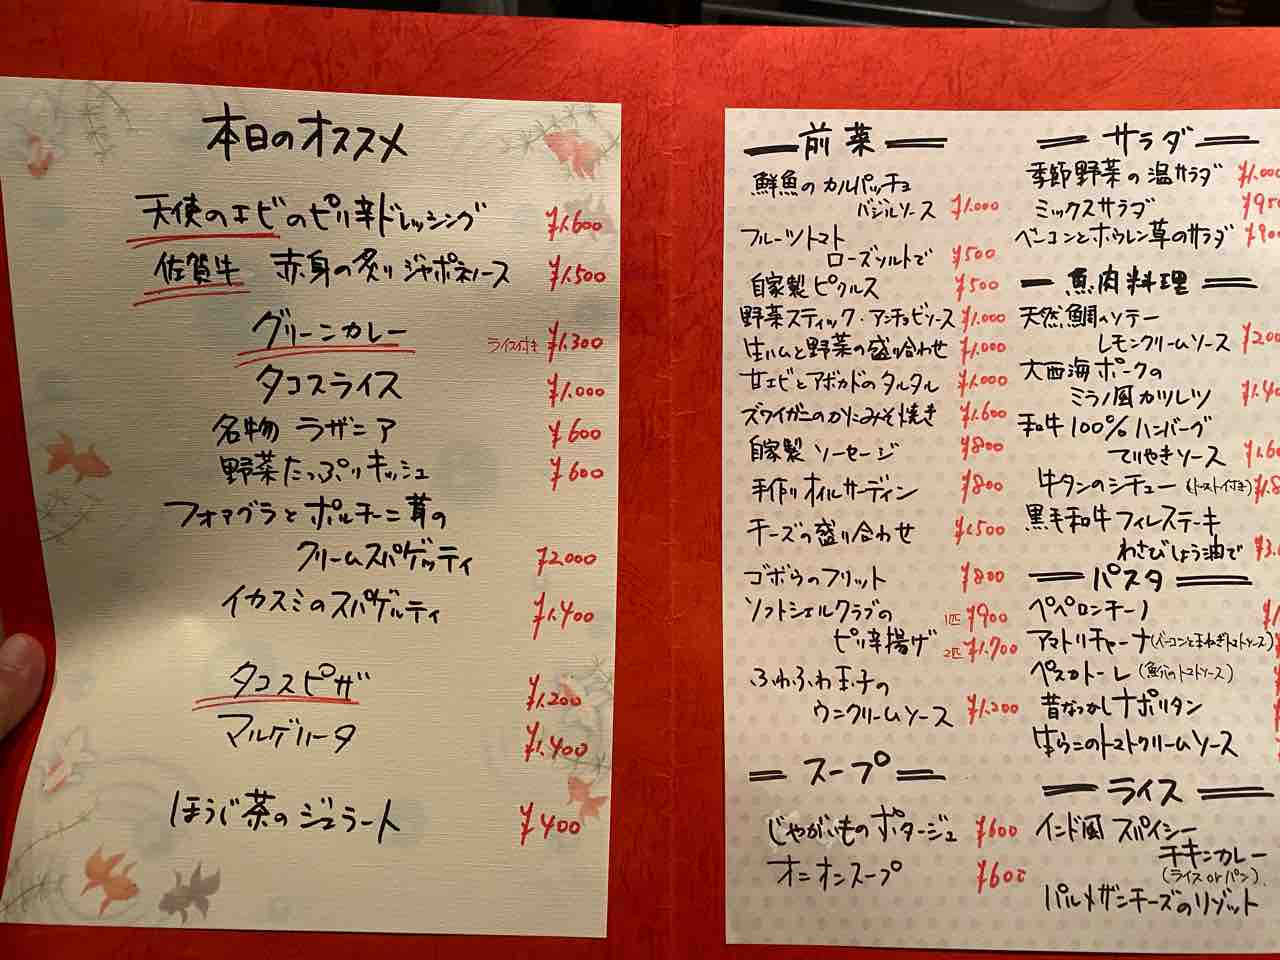 本日のオススメ
天使のエビのピリ辛ドレッシング ¥1.600
佐賀牛 赤身の炙り ジャポネソース ¥1.500
グリーンカレー ライス付き ¥1.300
タコスライス ¥1.000
名物 ラザニア ¥600
野菜たっぷりキッシュ ¥600
フォアグラとポルチーニ茸の
クリームスパゲッティ ¥2.000
イカスミのスパゲッティ ¥1.400
タコスピザ ¥1.200
マルゲリータ ¥1.400
ほうじ茶のジェラート ¥400
前菜
鮮魚のカルパッチョ
バジルソース ¥1.000
フルーツトマト
ローズソルトで ¥500
自家製ピクルス ¥500
野菜スティック・アンチョビソース ¥1.000
生ハムと野菜の盛り合わせ ¥1.000
甘エビとアボカドのタルタル ¥1.000
ズワイガニのかにみそ焼き ¥1.600
自家製 ソーセージ ¥800
手作りオイルサーディン ¥800
チーズの盛り合わせ ¥1.500
ゴボウのフリット ¥800
ソフトシェルクラブの 1匹 ¥900
ピリ辛揚げ 2匹 ¥1.700
ふわふわ玉子の
ウニクリームソース ¥1.200
スープ
じゃがいものポタージュ ¥600
オニオンスープ ¥600
サラダ
季節野菜の温サラダ ¥1.000
ミックスサラダ ¥950
ベーコンとホウレン草のサラダ
魚肉料理
天然鯛のソテー
レモンクリームソース
大西海ポークの
ミラノ風カツレツ
和牛100%ハンバーグ
てりやきソース
牛タンのシチュー (トースト付き)
黒毛和牛フィレステーキ
わさびしょう油で
パスタ
ペペロンチーノ
アマトリチャーナ (ベーコンと玉ねぎトマトソース)
ペスカトーレ (魚介のトマトソース)
昔なつかしナポリタン
生うにのトマトクリームソース
ライス
インド風 スパイシー
チキンカレー
(ライス or パン)
パルメザンチーズのリゾット